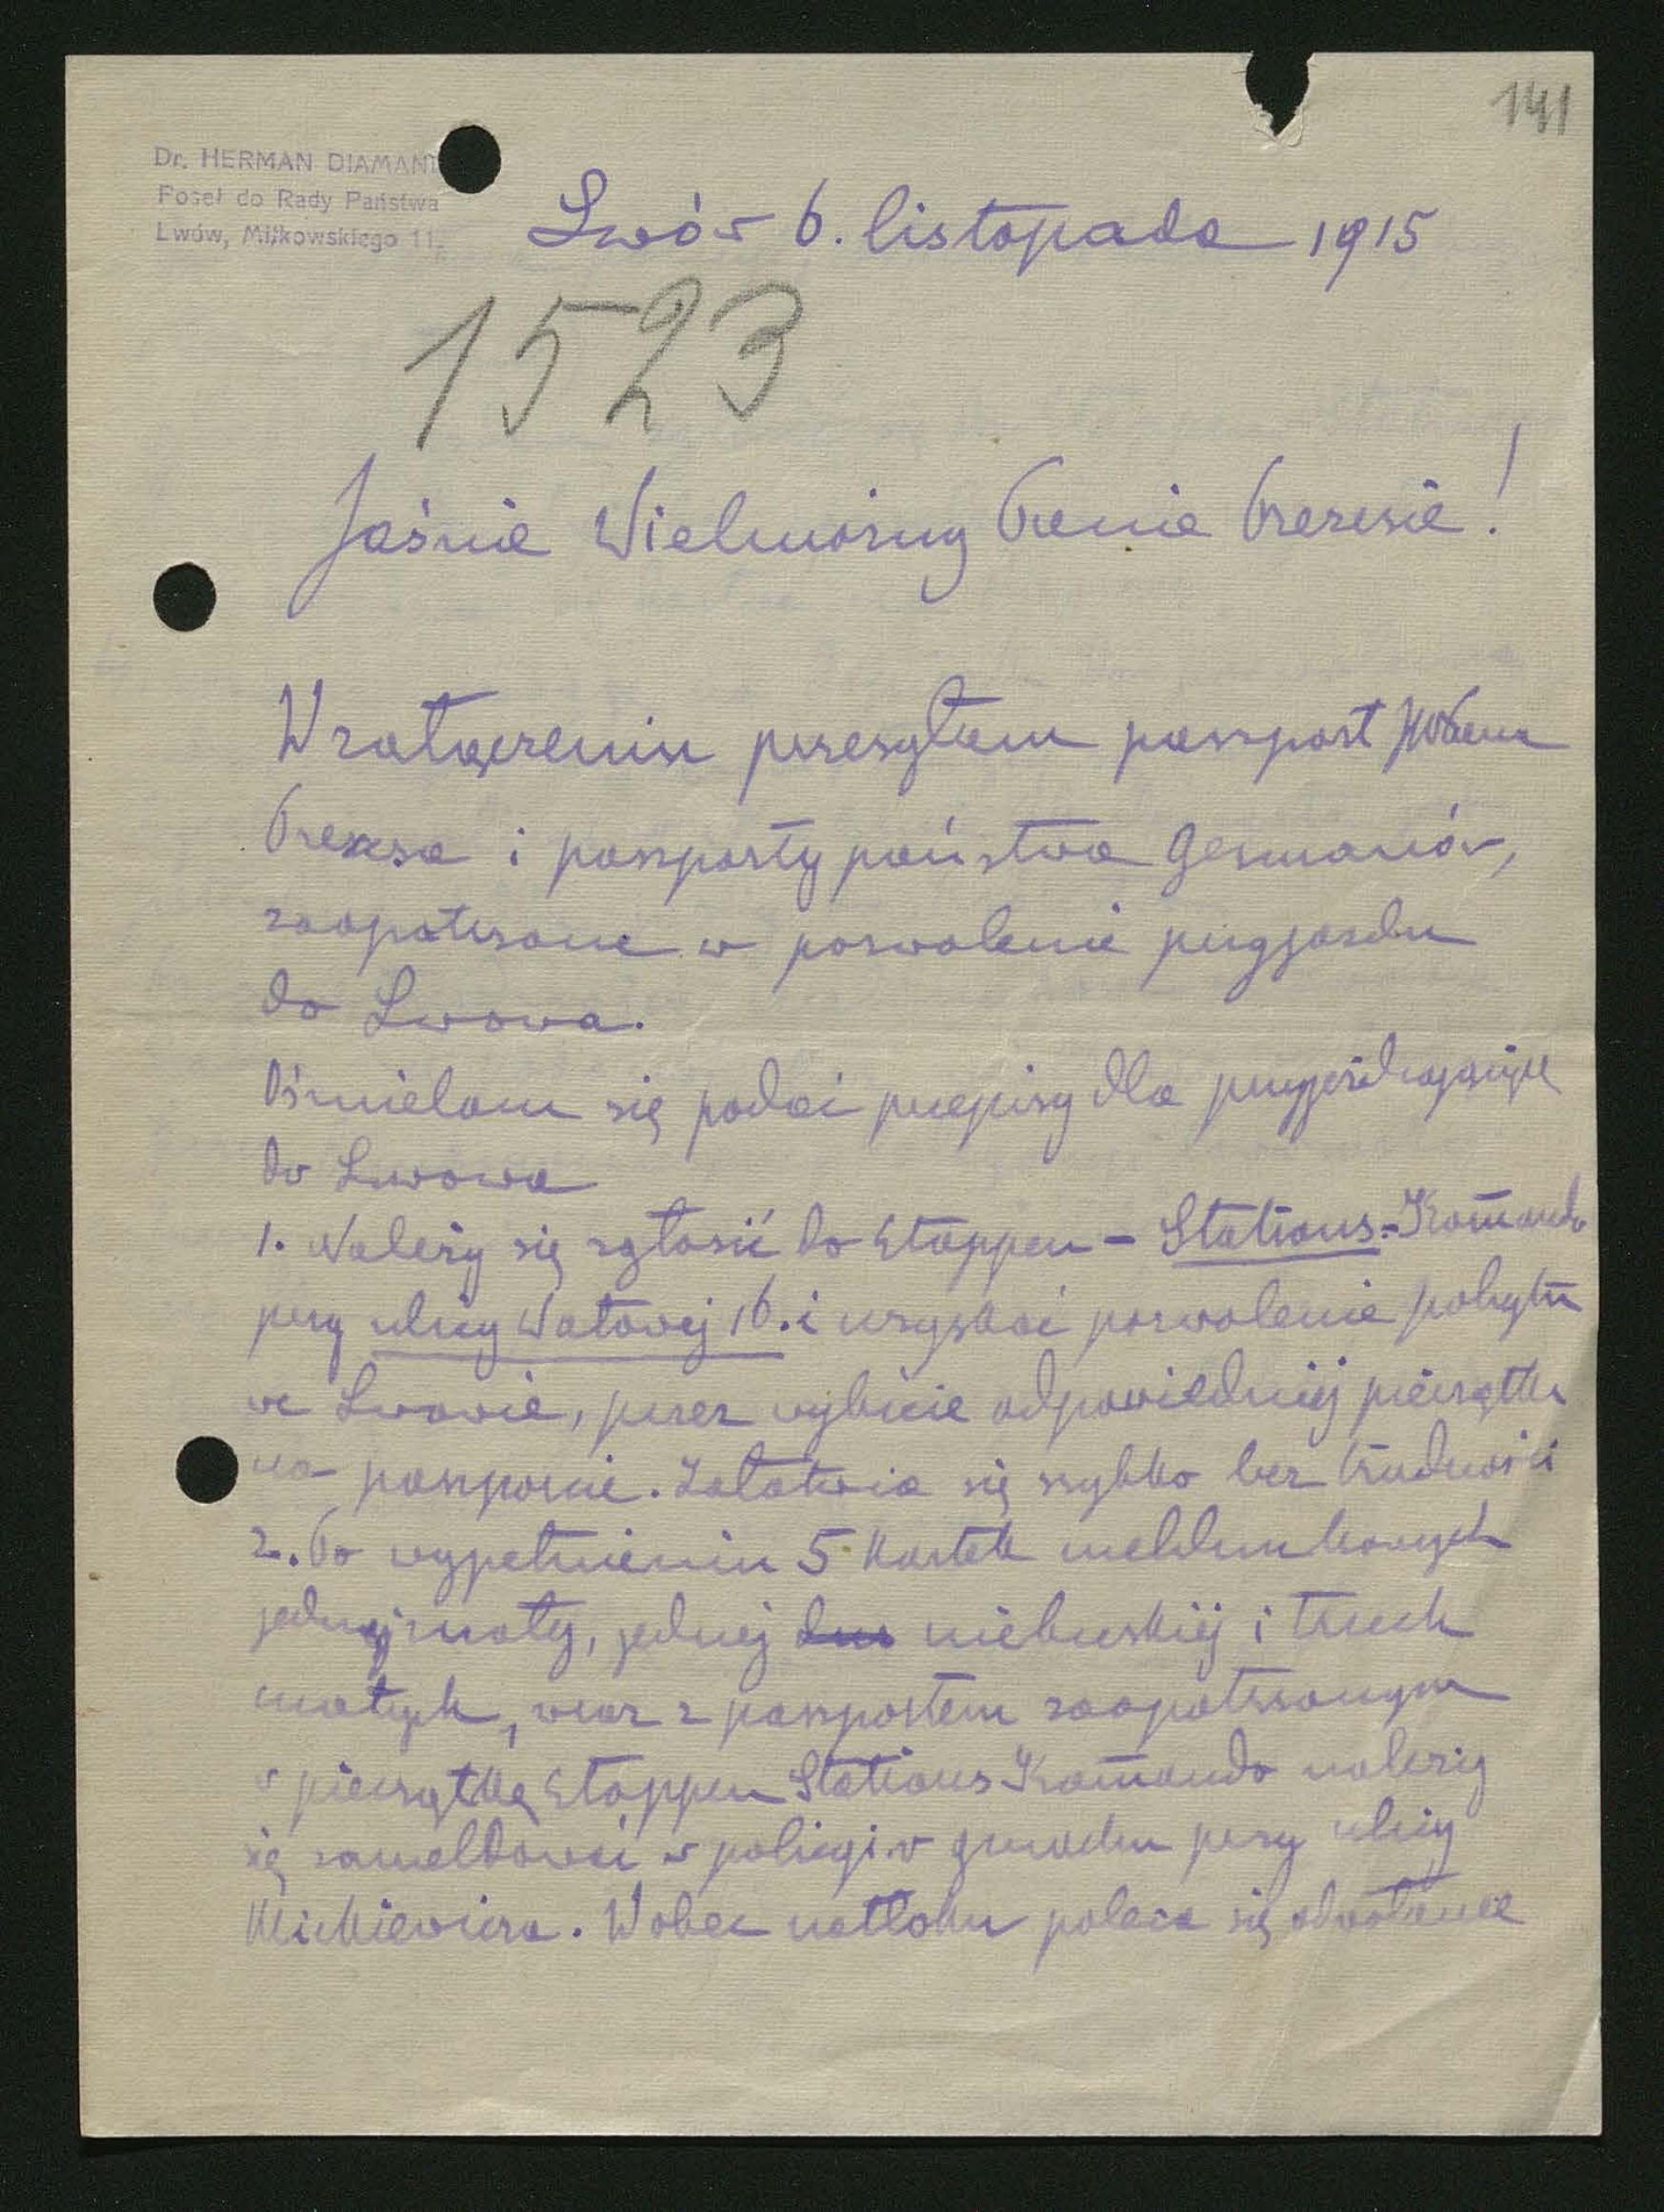 141
Dr. HERMAN DIAMAND
Poseł do Rady Państwa
Lwów, Miłkowskiego 11.
Lwów 6. listopada 1915
1523
Jaśnie Wielmożny Panie Prezesie!
W załączeniu przesyłam paszport
Prezesa i paszporty państwa Germanów,
zaopatrzone w pozwolenie przyjazdu
do Lwowa.
Ośmielam się podać przepisy dla przyjeżdżających
do Lwowa
1. Należy się zgłosić do Etappen-Stations-Komando
przy ulicy Wałowej 16. i uzyskać pozwolenie pobytu
we Lwowie, przez wybicie odpowiedniej pieczątki
na paszporcie. Załatwia się szybko bez trudności
2. Po wypełnieniu 5 kartek meldunkowych
jednej małej, jednej niebieskiej i trzech
małych, wraz z paszportem zaopatrzonym
w pieczątkę Etappen Stations Komando należy
się zameldować w policyi w gmachu przy ulicy
Mickiewicza. Wobec natłoku poleca się